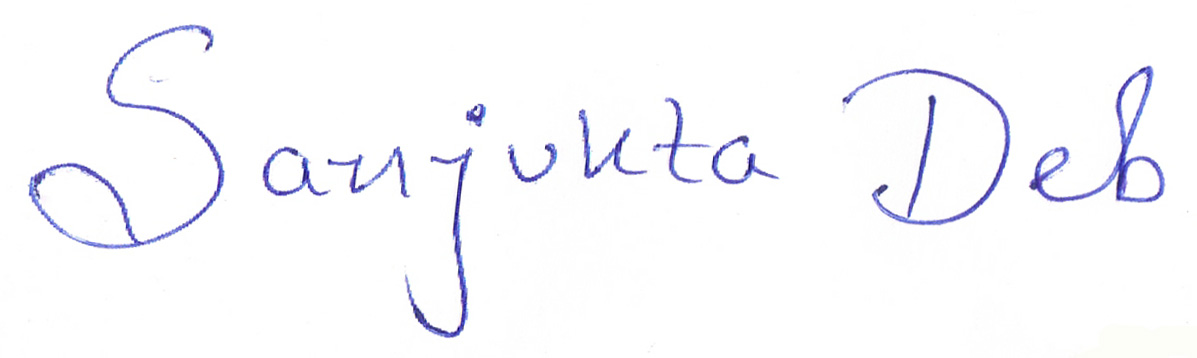 Sanjukta Deb